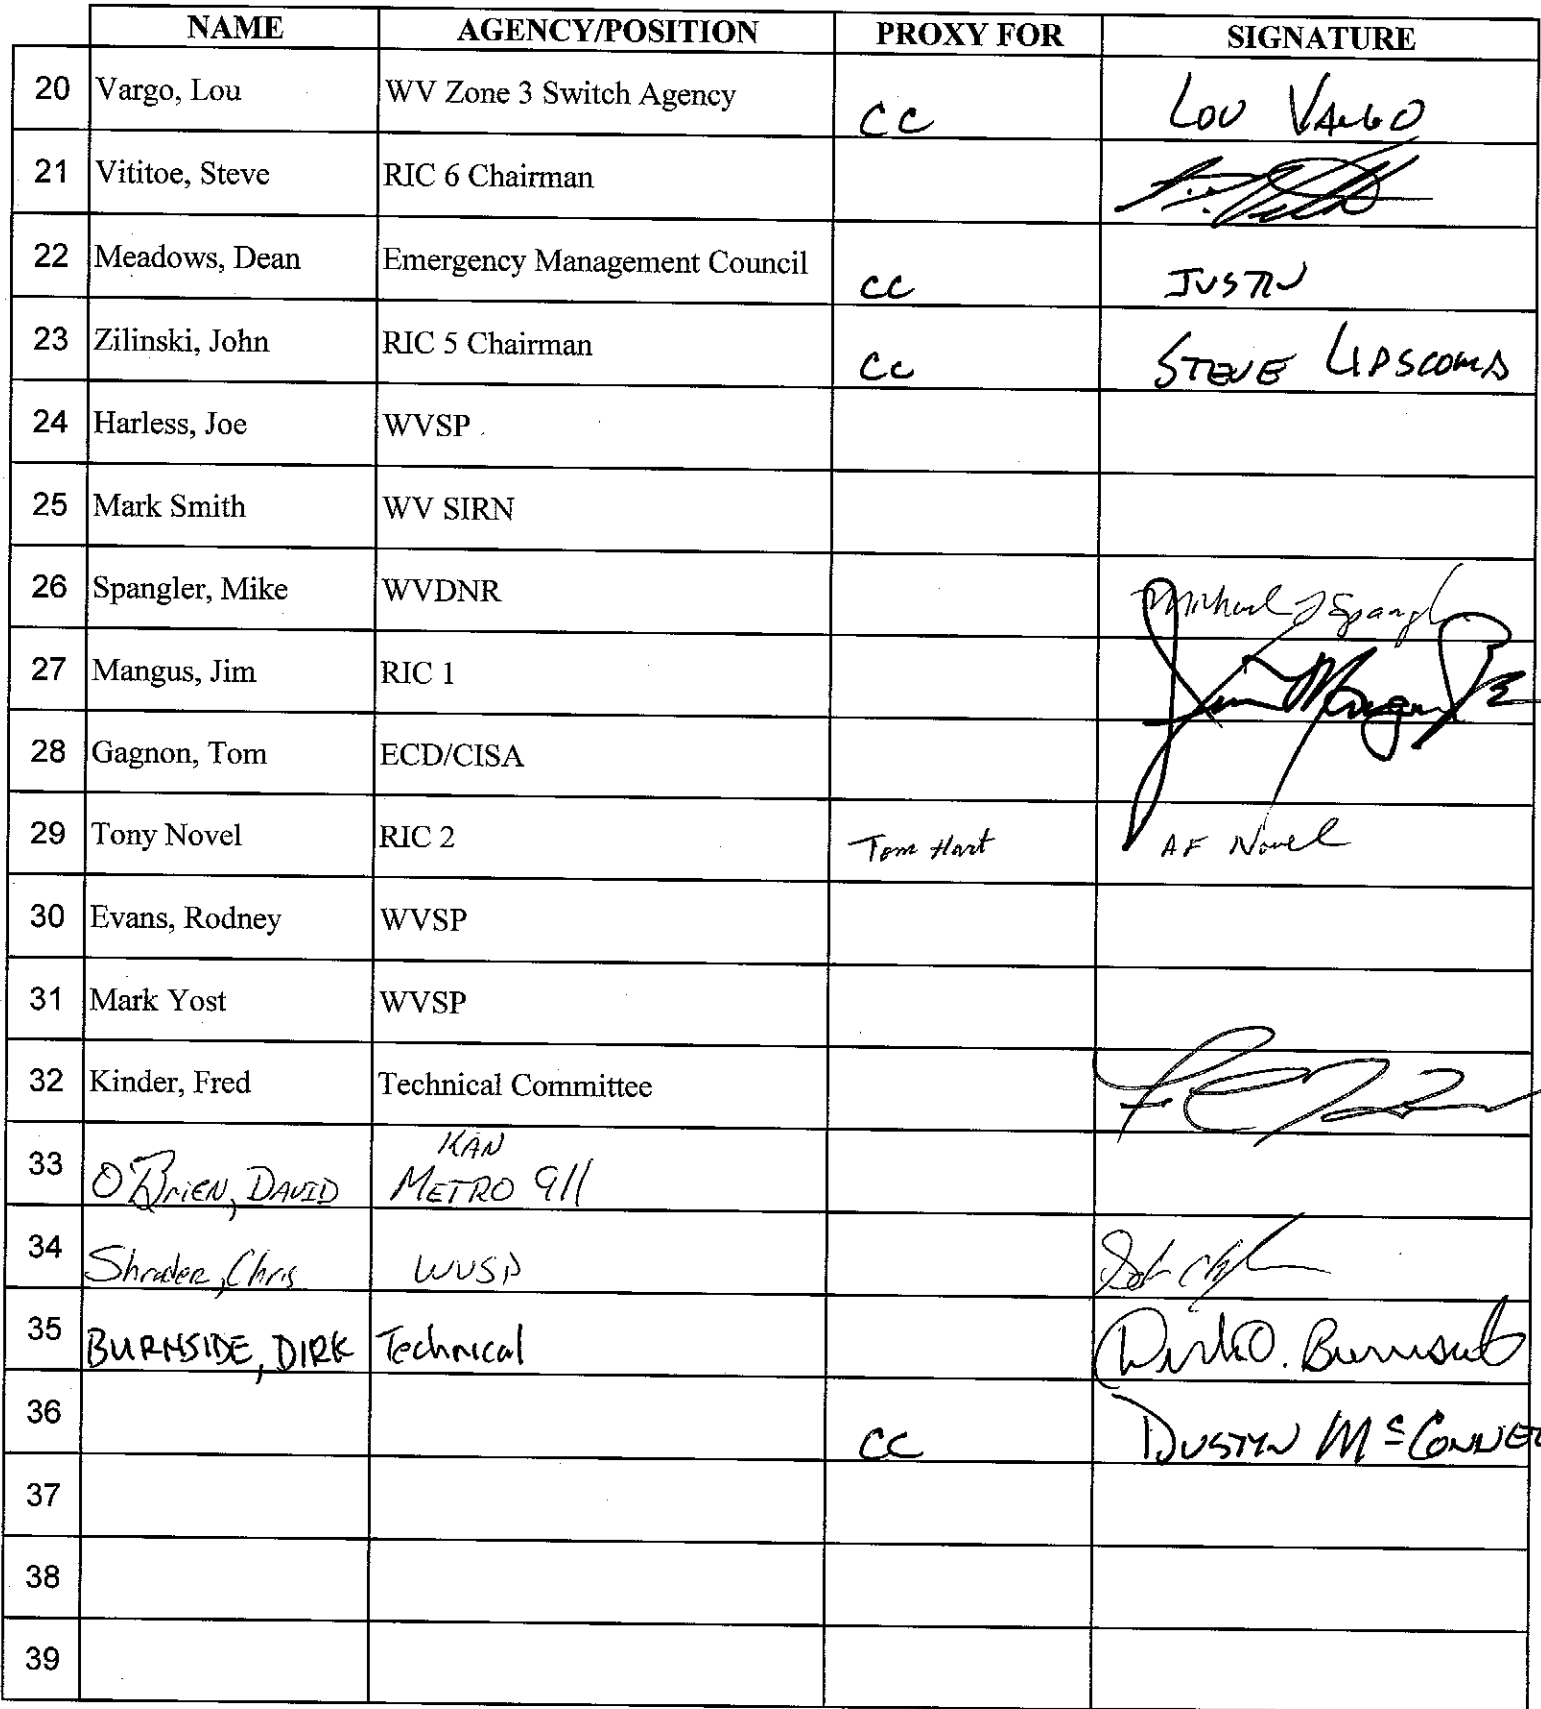 NAME AGENCY/POSITION PROXY FOR SIGNATURE
20 Vargo, Lou WV Zone 3 Switch Agency CC LOU VARGO
21 Vititoe, Steve RIC 6 Chairman
22 Meadows, Dean Emergency Management Council CC JUSTIN
23 Zilinski, John RIC 5 Chairman CC STEVE LIPSCOMB
24 Harless, Joe WVSP
25 Mark Smith WV SIRN
26 Spangler, Mike WVDNR Michael J Spangl
27 Mangus, Jim RIC 1 Jim Mangus Jr
28 Gagnon, Tom ECD/CISA
29 Tony Novel RIC 2 Tom Hart AF Novel
30 Evans, Rodney WVSP
31 Mark Yost WVSP
32 Kinder, Fred Technical Committee
33 O'BRIEN, DAVID KAN
METRO 911
34 Shrader, Chris WVSP
35 BURNSIDE, DIRK Technical Dirk O. Burnside
36 CC DUSTYN McCONNE
37
38
39